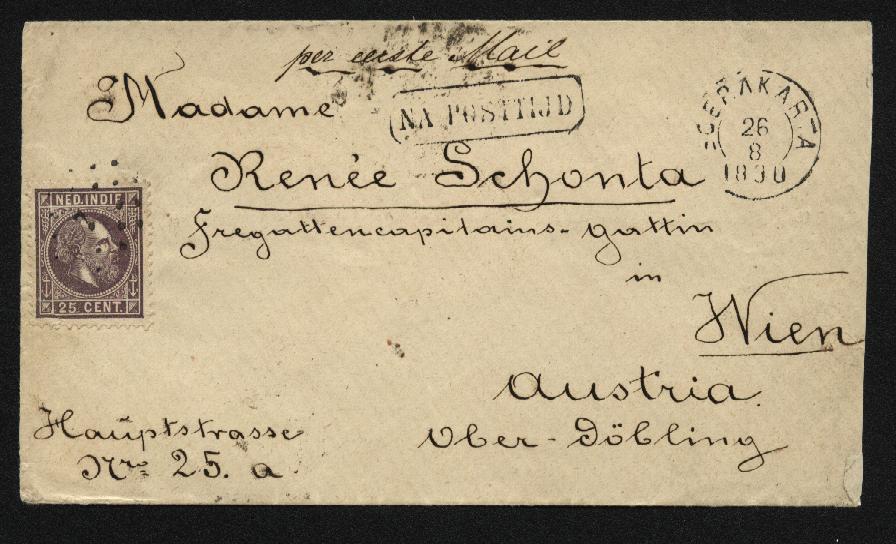 per eerste Mail
Madame
NA POSTTIJD
SOERAKARTA
26
8
1890
Renée Schonta
Fregattencapitains-gattin
in
Wien
Austria.
Ober-Döbling
Hauptstrasse
Nro 25. a
NED. INDIE
25 CENT.